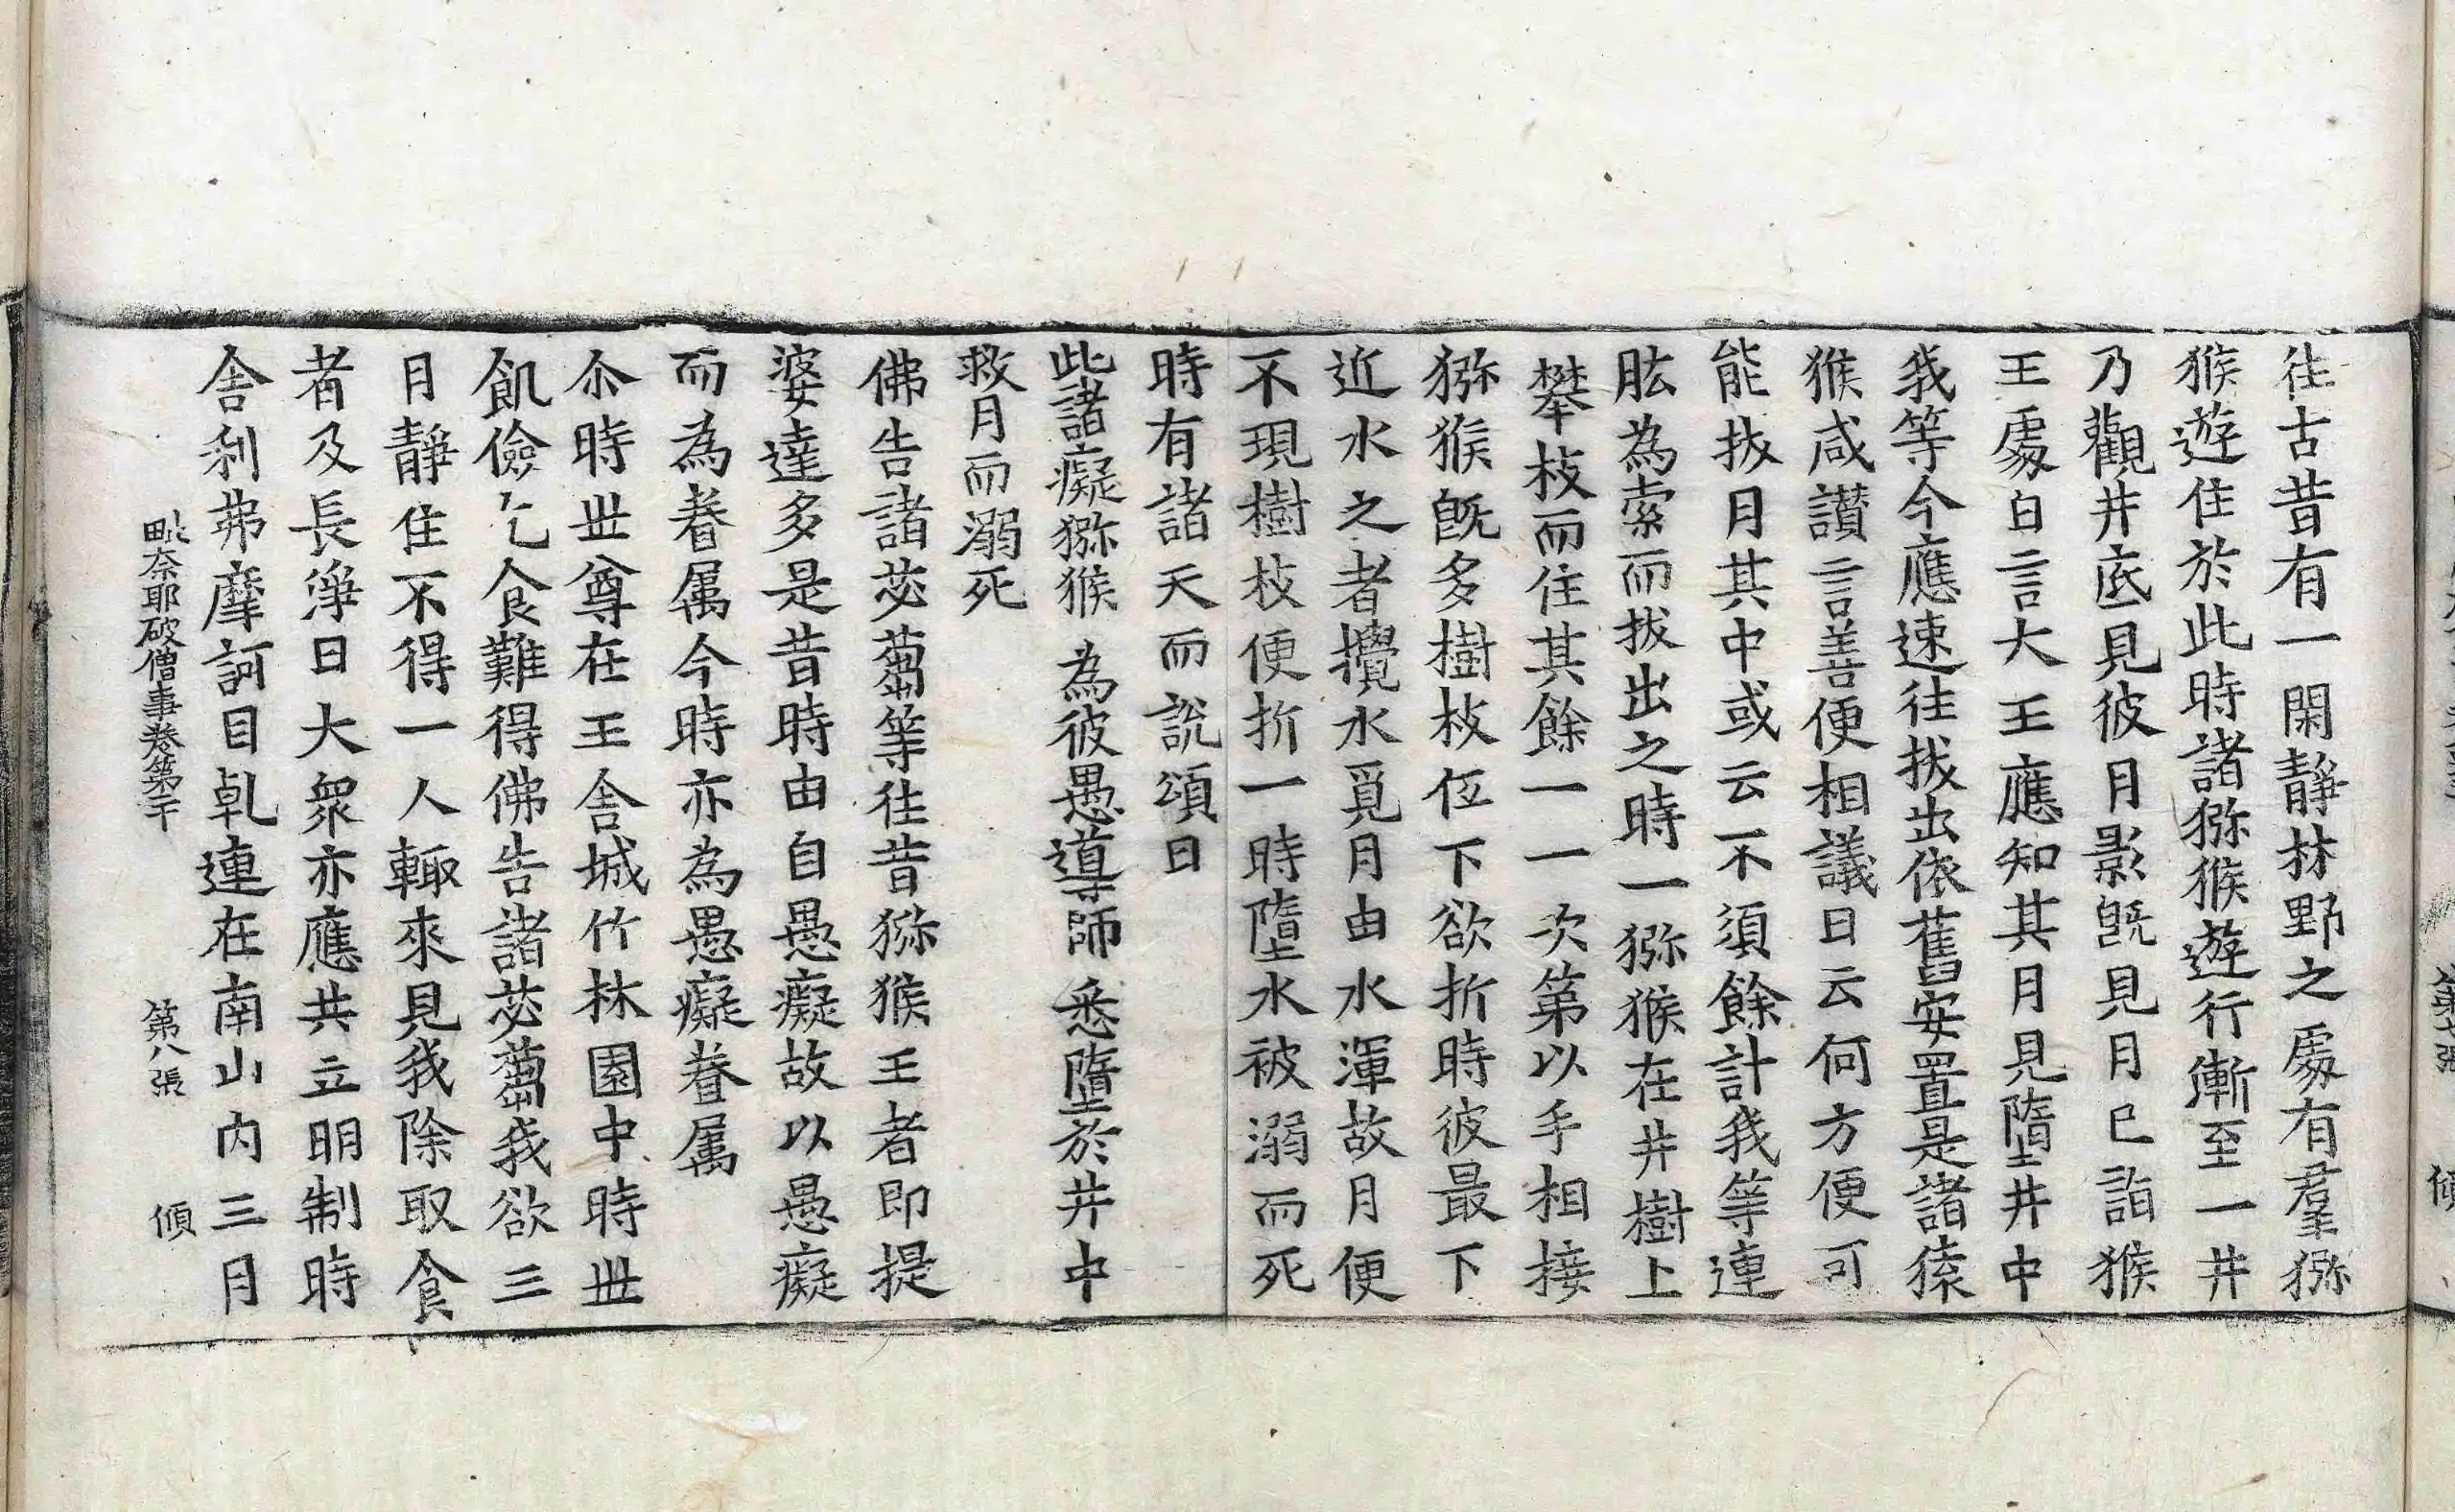 往古昔有一閑靜林野之處有羣獼
猴遊住於此時諸獼猴遊行漸至一井
乃觀井底見彼月影旣見月已詣猴
王處白言大王應知其月見墮井中
我等今應速往拔出依舊安置是諸猿
猴咸讃言善便相議曰云何方便可
能拔月其中或云不須餘計我等連
肱為索而拔出之時一獼猴在井樹上
攀枝而住其餘一一次第以手相接
獼猴旣多樹枝低下欲折時彼最下
近水之者攪水覓月由水渾故月便
不現樹枝便折一時墮水被溺而死
時有諸天而說頌曰
此諸癡獼猴 為彼愚導師 悉墮於井中
救月而溺死
佛告諸苾蒭等往昔獼猴王者即提
婆達多是昔時由自愚癡故以愚癡
而為眷属今時亦為愚癡眷属
尒時世尊在王舍城竹林園中時世
飢儉乞食難得佛告諸苾蒭我欲三
月靜住不得一人輙來見我除取食
者及長淨日大衆亦應共立明制時
舍利弗摩訶目乹連在南山内三月
毗奈耶破僧事卷第二十 第八張 傾